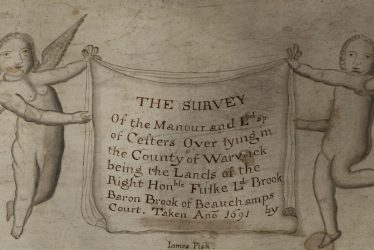 THE SURVEY
Of the Manour and Ldsp
of Cesters Over lying in
the County of Warwick
being the Lands of the
Right Honble Fulke Ld Brook
Baron Brook of Beauchamps
Court. Taken Ano 1691 by
James Fish.